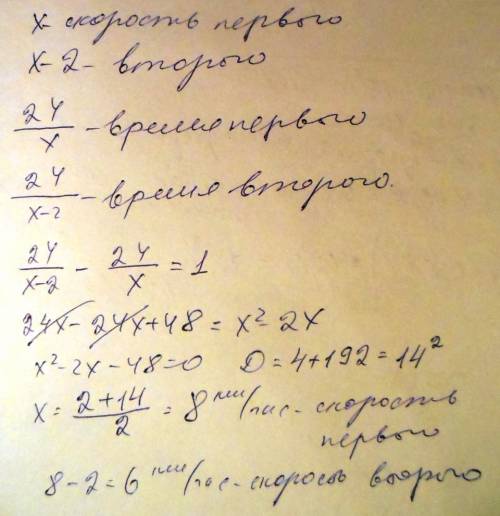 x - скорость первого
x - 2 - второго
24/x - время первого
24/x-2 - время второго.
24/x-2 - 24/x = 1
24x - 24x + 48 = x² - 2x
x² - 2x - 48 = 0 D = 4 + 192 = 14²
x = 2+14/2 = 8 км/час - скорость первого
8 - 2 = 6 км/час - скорость второго